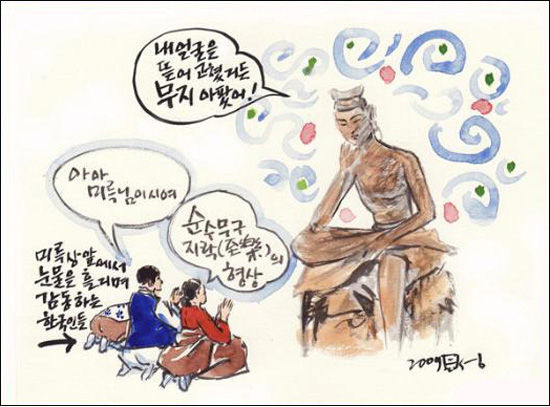 내 얼굴을
뜯어 고쳤거든
무지 아팠어!
아아
미륵님이시여
순수무구
지락(至樂)의
형상
미륵상 앞에서
눈물을 흘리며
감동하는
한국인들
2009